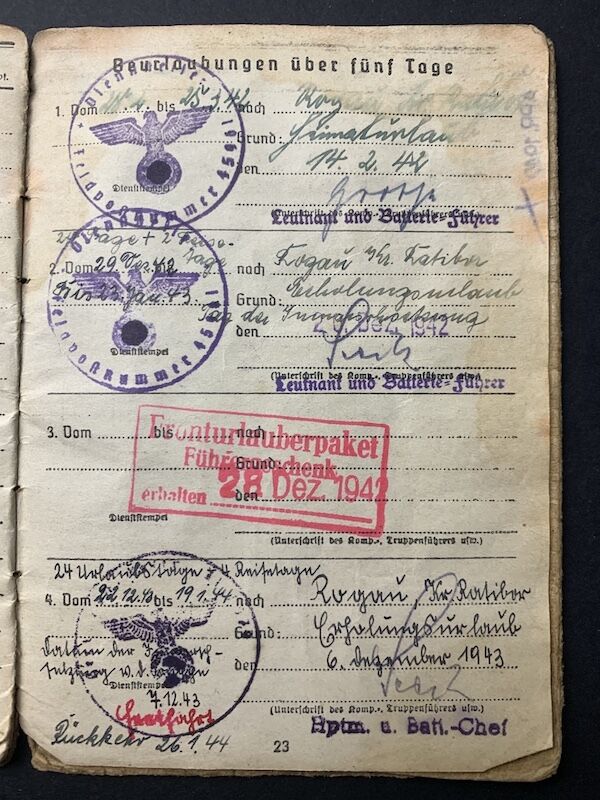 Beurlaubungen über fünf Tage
1. Vom bis 25.3.42 nach Rogau
Grund: Heimaturlaub
den 14. 2. 42
Dienststempel
Dienststelle Feldpostnummer 45461
Leutnant und Batterie-Führer
24 Tage + 2 Reise-
Tage
2. Vom 29. Dez. 42 nach Rogau Kr. Ratibor
Bis 23. Jan. 43 Grund: Erholungsurlaub
Tag der
den 2 Dez. 1942
Dienststempel
Feldpostnummer
(Unterschrift des Komp.-, Truppenführers usw.)
Leutnant und Batterie-Führer
3. Vom bis nach
Fronturlauberpaket
Führergeschenk
Grund:
erhalten 28. Dez. 1942
den
Dienststempel
(Unterschrift des Komp.-, Truppenführers usw.)
24 Urlaubstage + 4 Reisetage
4. Vom 22.12.43 bis 19.1.44 nach Rogau, Kr. Ratibor
Grund: Erholungsurlaub
Datum der
den 6. dezember 1943
Dienststempel
7.12.43
(Unterschrift des Komp.-, Truppenführers usw.)
Hptm. u. Batt.-Chef
Rückkehr 26.1.44
23